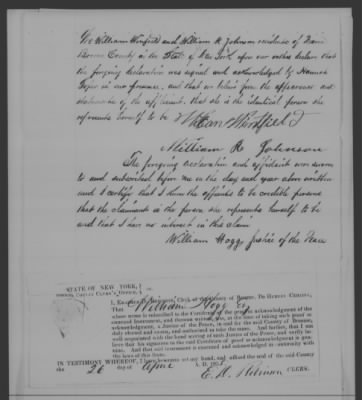 We William Winfield and William R. Johnson residents of
Broome County in the State of New York upon our oaths declare that
the forgoing declaration was signed and acknowledged by Hannah
in our presence, and that we believe from the appearance and
statements of the applicant, that she is the identical person she
represents herself to be
William Winfield
William R Johnson
The forgoing declaration and affidavit were sworn
to and subscribed before me on the day and year above written
and I certify that I know the affiants to be credible persons
that the claimant is the person she represents herself to be
and that I have no interest in this claim
William Hogg Justice of the Peace
STATE OF NEW YORK, } ss.
BROOME COUNTY CLERK'S OFFICE,
Clerk of the County of Broome, DO HEREBY CERTIFY,
That William Hogg Esq
whose name is subscribed to the Certificate of the proof or acknowledgment of the
annexed Instrument, and thereon written, was, at the time of taking such proof or
acknowledgment, a Justice of the Peace, in and for the said County of Broome,
duly elected and sworn, and authorized to take the same. And further, that I am
well acquainted with the hand writing of such Justice of the Peace, and verily be-
lieve that his signature to the said Certificate of proof or acknowledgment is gen-
uine. And that said instrument is executed and acknowledged in conformity with
the laws of this State.
IN TESTIMONY WHEREOF, I have hereunto set my hand, and affixed the seal of the said County
the 26 day of June A. D. 185
CLERK.